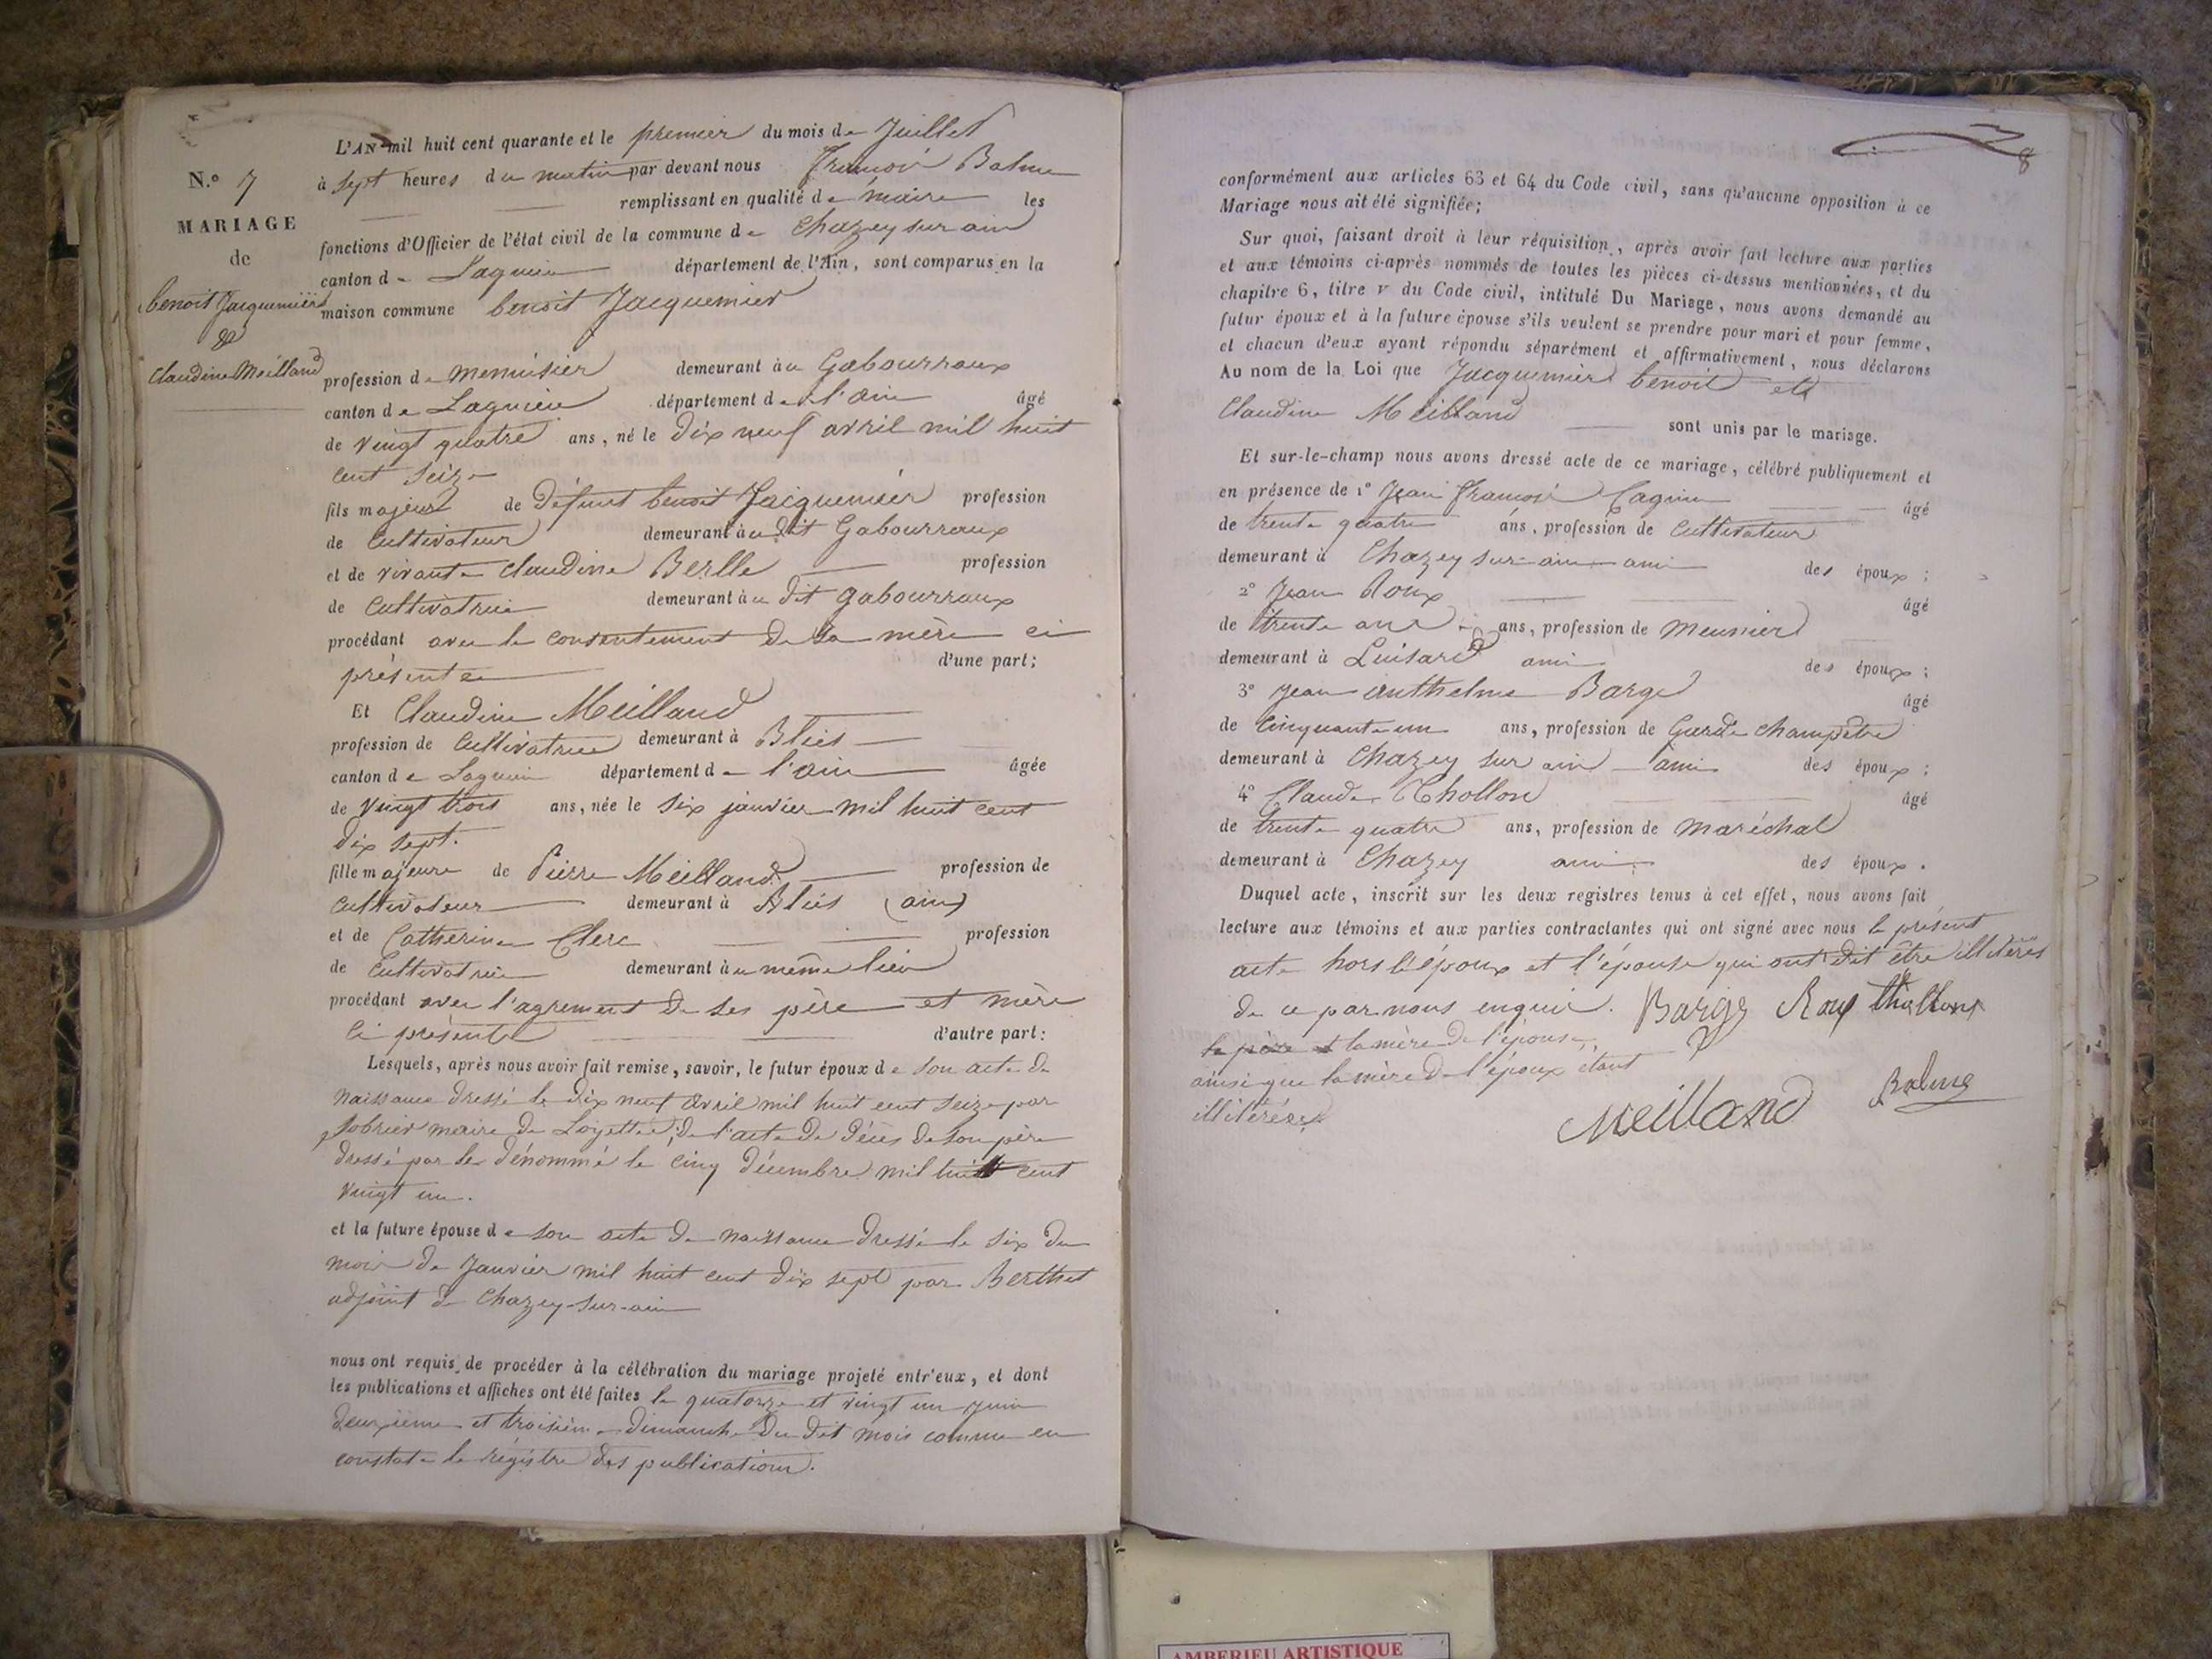 N.º 7
MARIAGE
de
benoit Jacquemier
&
Claudine Meilland
L'AN mil huit cent quarante et le premier du mois de Juillet
à sept heures du matin par devant nous François Balme
remplissant en qualité de maire les
fonctions d'Officier de l'état civil de la commune de Chazey sur ain
canton de Lagnieu département de l'Ain, sont comparus en la
maison commune benoit Jacquemier
profession de menuisier demeurant au Gabourraux
canton de Lagnieu département de l'ain âgé
de vingt quatre ans, né le dix neuf avril mil huit
cent seize
fils majeur de Défunt benoit Jacquemier profession
de Cultivateur demeurant au dit Gabourraux
et de vivante Claudine Berlle profession
de Cultivatrice demeurant au dit Gabourraux
procédant avec le consentement de sa mère ci
présente d'une part;
Et Claudine Meilland
profession de Cultivatrice demeurant à Blies
canton de Lagnieu département de l'ain âgée
de vingt trois ans, née le six janvier mil huit cent
dix sept.
fille majeure de Pierre Meilland profession de
Cultivateur demeurant à Blies (ain)
et de Catherine Clerc profession
de Cultivatrice demeurant au même lieu
procédant avec l'agrement de ses père et mère
ci présents d'autre part:
Lesquels, après nous avoir fait remise, savoir, le futur époux de son acte de
naissance dressé le dix neuf avril mil huit cent seize par
maire de Loyettes, de l'acte de décès de son père
dressé par le dénommé le cinq décembre mil huit cent
vingt un.
et la future épouse de son acte de naissance dressé le six du
mois de Janvier mil huit cent dix sept par Berthet
adjoint de Chazey-sur-ain
nous ont requis de procéder à la célébration du mariage projeté entr'eux, et dont
les publications et affiches ont été faites le quatorze et vingt un juin
deuxième et troisième dimanche du dit mois comme en
constate le régistre des publications.
8
conformément aux articles 63 et 64 du Code civil, sans qu'aucune opposition à ce
Mariage nous ait été signifiée;
Sur quoi, faisant droit à leur réquisition, après avoir fait lecture aux parties
et aux témoins ci-après nommés de toutes les pièces ci-dessus mentionnées, et du
chapitre 6, titre v du Code civil, intitulé Du Mariage, nous avons demandé au
futur époux et à la future épouse s'ils veulent se prendre pour mari et pour femme,
et chacun d'eux ayant répondu séparément et affirmativement, nous déclarons
Au nom de la Loi que Jacquemier benoit et
Claudine Meilland sont unis par le mariage.
Et sur-le-champ nous avons dressé acte de ce mariage, célébré publiquement et
en présence de 1º Jean François Cagnin âgé
de trente quatre ans, profession de Cultivateur
demeurant à Chazey sur-ain ami des époux;
2º Jean Roux âgé
de trente ans, profession de Meunier
demeurant à Luisard ami des époux;
3º Jean Anthelme Barge âgé
de Cinquante un ans, profession de Garde Champêtre
demeurant à Chazey sur ain ami des époux;
4º Claude Thollon âgé
de trente quatre ans, profession de Maréchal
demeurant à Chazey ami des époux.
Duquel acte, inscrit sur les deux registres tenus à cet effet, nous avons fait
lecture aux témoins et aux parties contractantes qui ont signé avec nous le présent
acte hors l'époux et l'épouse qui ont dit être illitérés
de ce par nous enquis. Barge Roux Thollon
le père et la mère de l'épouse,
ainsi que la mère de l'époux étant
illitérés
Meilland Balme
AMBERIEU ARTISTIQUE